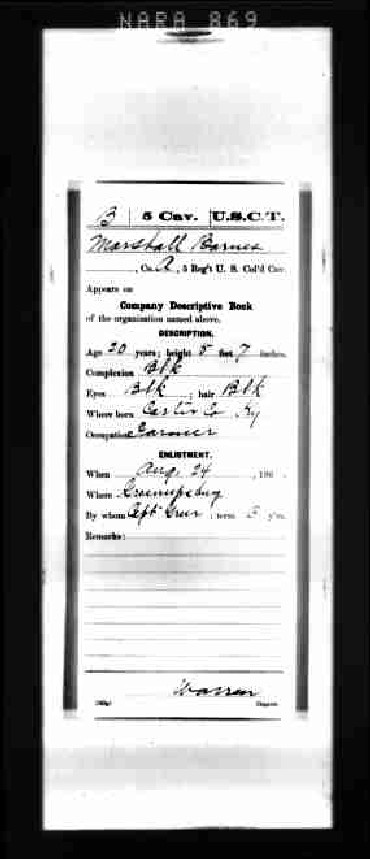 NARA 869
B | 5 Cav. | U.S.C.T.
Marshall Barnes
, Co. A, 5 Reg't U. S. Col'd Cav.
Appears on
Company Descriptive Book
of the organization named above.
DESCRIPTION.
Age 20 years; height 5 feet 7 inches.
Complexion Blk
Eyes Blk ; hair Blk
Where born Carter Co Ky
Occupation Farmer
ENLISTMENT.
When Aug. 24 , 186 .
Where Greenupsburg
By whom Capt Greer ; term y'rs.
Remarks:
Warren
Copyist.